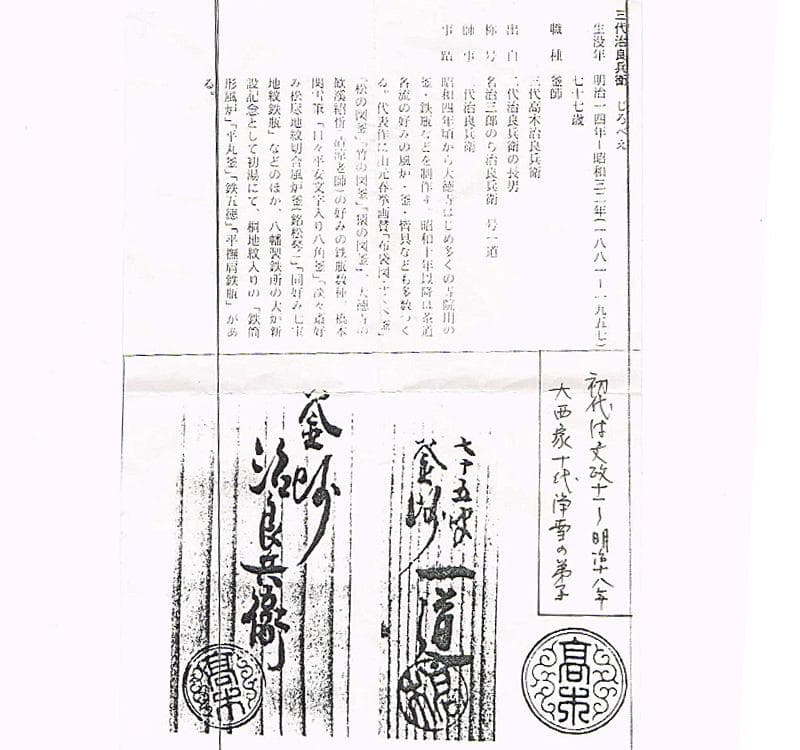 三代治良兵衛 じろべえ
生没年 明治一四年ー昭和三二年(一八八一ー一九五七)
七十七歳
職種 釜師
三代高木治良兵衛
出自 二代治良兵衛の長男
称号 名治三郎のち治良兵衛 号一道
師事 二代治良兵衛
事蹟 昭和四年頃から大徳寺はじめ多くの寺院用の
釜・鉄瓶などを制作す。昭和十年以降は茶道
各流の好みの風炉・釜・皆具なども多数つく
る。代表作に山元春挙画賛「布袋図 釜」
「松の図釜」「竹の図釜」「猿の図釜」、大徳寺の
歓渓紹忻(清涼老師)の好みの鉄瓶数種、橋本
関雪筆「日々平安文字入り八角釜」「淡々斎好
み松唐地紋切合風炉釜(銘松琴)」「同好み七宝
地紋鉄瓶」などのほか、八幡製鉄所の大炉新
設記念として初湯にて、桐地紋入りの「鉄筒
形風炉」「平丸釜」「鉄五徳」「平撫肩鉄瓶」があ
る。
初代は文政十一〜明治十八年
大西家十代浄雪の弟子
七十五叟
釜師 一道
釜師
治良兵衛
高木
高木